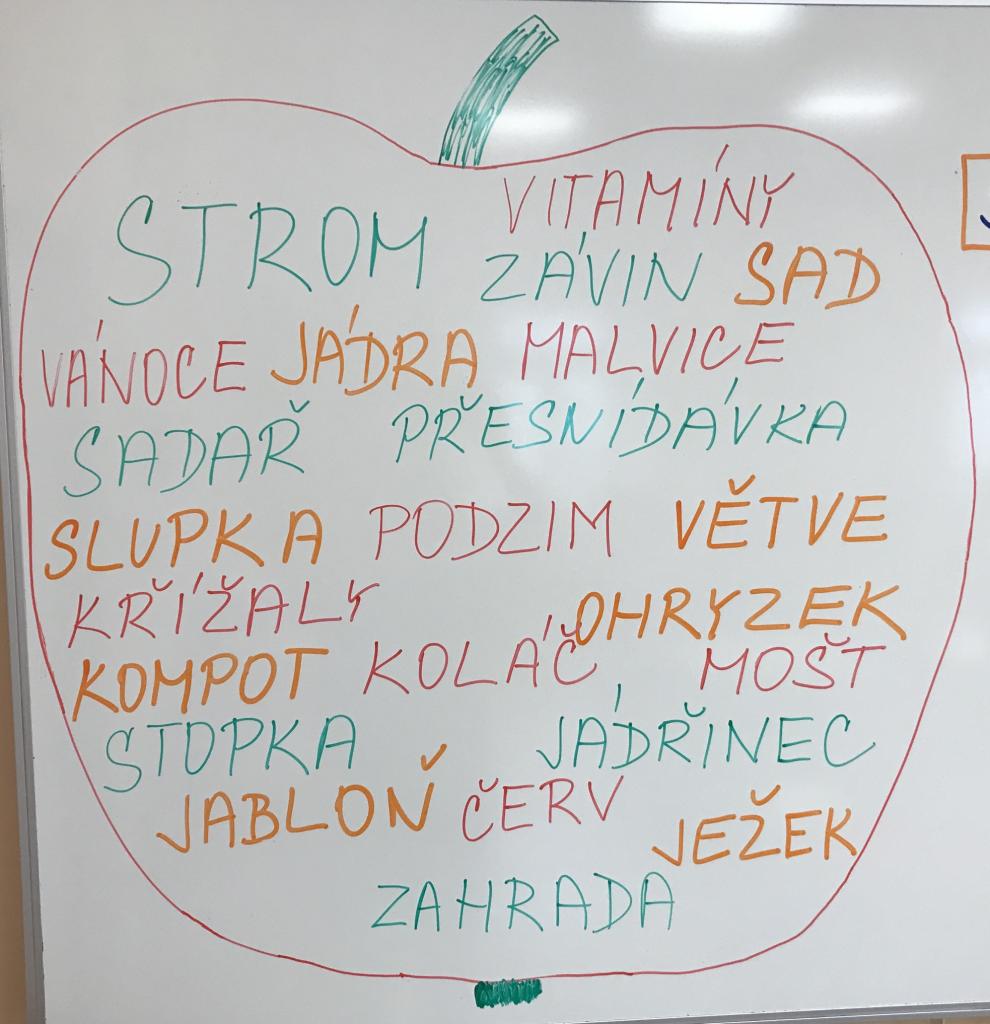 STROM VITAMÍNY
ZÁVIN SAD
VÁNOCE JÁDRA MALVICE
SADAŘ PŘESNÍDÁVKA
SLUPKA PODZIM VĚTVE
KŘÍŽALY OHRYZEK
KOMPOT KOLÁČ MOŠT
STOPKA JÁDŘINEC
JABLOŇ ČERV JEŽEK
ZAHRADA